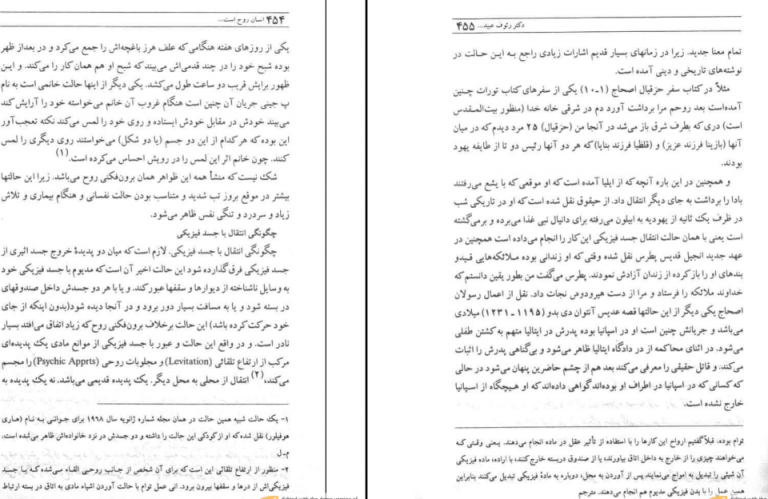 ۴۵۴ انسان روح است...
یکی از روزهای هفته هنگامی که علف هرز باغچه‌اش را جمع می‌کرد و در بعداز ظهر
بوده شبح خود را در چند قدمی‌اش می‌بیند که شبح او هم همان کار را می‌کند. و این
ظهور برایش قریب دو ساعت طول می‌کشد. یکی دیگر از اینها حالت خانمی است به نام
پ جینی جریان آن چنین است هنگام غروب آن خانم می‌خواسته خود را آرایش کند
می‌بیند خودش در مقابل خودش ایستاده و روی خود را لمس می‌کند نکته تعجب‌آور
این بوده که هر کدام از این دو جسم (یا دو شکل) می‌خواستند روی دیگری را لمس
کنند. چون خانم اثر این لمس را در رویش احساس می‌کرده است.(۱)
شک نیست که منشأ همه این ظواهر همان برون‌فکنی روح می‌باشد. زیرا این حالتها
بیشتر در موقع بروز تب شدید و متناسب بودن حالت نفسانی و هنگام بیماری و تلاش
زیاد و سردرد و تنگی نفس ظاهر می‌شود.
چگونگی انتقال با جسد فیزیکی
چگونگی انتقال با جسد فیزیکی. لازم است که میان دو پدیدهٔ خروج جسد اثیری از
جسد فیزیکی فرق گذارده شود این حالت اخیر آن است که مدیوم با جسد فیزیکی خود
به وسایل ناشناخته از دیوارها و سقفها عبور کند. و یا با هر دو جسدش داخل صندوقهای
در بسته شود و یا به مسافت بسیار دور برود و در آنجا دیده شود (بدون اینکه از جای
خود حرکت کرده باشد) این حالت برخلاف برون‌فکنی روح که زیاد اتفاق می‌افتد بسیار
نادر است. و در واقع این حالت و عبور با جسد فیزیکی از موانع مادی یک پدیده‌ای
مرکب از ارتفاع تلقائی (Levitation) و مجلوبات روحی (Psychic Apprts) را مجسم
می‌کند،(۲) انتقال از محلی به محل دیگر. یک پدیده قدیمی می‌باشد. نه یک پدیده به
۱- یک حالت شبیه همین حالت در همان مجله شماره ژانویه سال ۱۹۹۸ برای جوانی به نام (هاری
هوفیلون) نقل شده که او از کودکی این حالت را داشته و دو جسدش در نزد خانواده‌اش ظاهر می‌شده است.
م-ل
۲- منظور از ارتفاع تلقائی این است که برای آن شخص از جانب روحی القاء می‌شده که با جسد
فیزیکی‌اش از درها و سقفها بیرون برود. انی عمل توام با حالت آوردن اشیاء مادی به اتاق در بسته ارتباط
دکتر رئوف عبید... ۴۵۵
تمام معنا جدید. زیرا در زمانهای بسیار قدیم اشارات زیادی راجع به این حالت در
نوشته‌های تاریخی و دینی آمده است.
مثلاً در کتاب سفر حزقیال اصحاح (۱-۱۰) یکی از سفرهای کتاب تورات چنین
آمده است بعد روحم مرا برداشت آورد دم در شرقی خانه خدا (منظور بیت‌المقدس
است) دری که بطرف شرق باز می‌شد در آنجا من (حزقیال) ۲۵ مرد دیدم که در میان
آنها (بازینا فرزند عزیز) و (فلطیا فرزند بنایا) که هر دو آنها رئیس دو تا از طایفه یهود
بودند.
و همچنین در این باره آنچه که از ایلیا آمده است که او موقعی که با یشع می‌رفتند
بادا را برداشت به جای دیگر انتقال داد. از حیقوق نقل شده است که او در تاریکی شب
در ظرف یک ثانیه از یهودیه به ابیلون می‌رفته برای دانیال نبی غذا می‌برده و برمی‌گشته
است یعنی با همان حالت انتقال جسد فیزیکی این کار را انجام می‌داده است همچنین در
عهد جدید انجیل قدیس پطرس نقل شده وقتی که او زندانی بوده ملائکه‌هایی قیدو
بندهای او را باز کرده از زندان آزادش نمودند. پطرس می‌گفت من بطور یقین دانستم که
خداوند ملائکه را فرستاد و مرا از دست هیرودوس نجات داد. نقل از اعمال رسولان
اصحاح یکی دیگر از این حالتها قصه عدیس آنتوان دی بدو (۱۱۹۵-۱۲۳۱) میلادی
می‌باشد و جریانش چنین است او در اسپانیا بوده پدرش در ایتالیا متهم به کشتن طفلی
می‌شود. در اثنای محاکمه از در دادگاه ایتالیا ظاهر می‌شود و بی‌گناهی پدرش را اثبات
می‌کند. و قاتل حقیقی را معرفی می‌کند بعد هم از چشم حاضرین پنهان می‌شود در حالی
که کسانی که در اسپانیا در اطراف او بوده‌اند گواهی داده‌اند که او هیچگاه از اسپانیا
خارج نشده است.
توام بوده. قبلاً گفتیم ارواح این کارها را با استفاده از تأثیر عقل در ماده انجام می‌دهند. یعنی وقتی که
می‌خواهند چیزی را از خارج به داخل اتاق بیاورند، یا از صندوق دربسته خارج کنند، با اراده، ماده فیزیکی
آن شیئی را تبدیل به امواج می‌نمایند پس از آوردن به محل، دوباره به مادهٔ فیزیکی تبدیل می‌کنند بنابراین
همین عمل را با بدن فیزیکی مدیوم هم انجام می‌دهند. مترجم